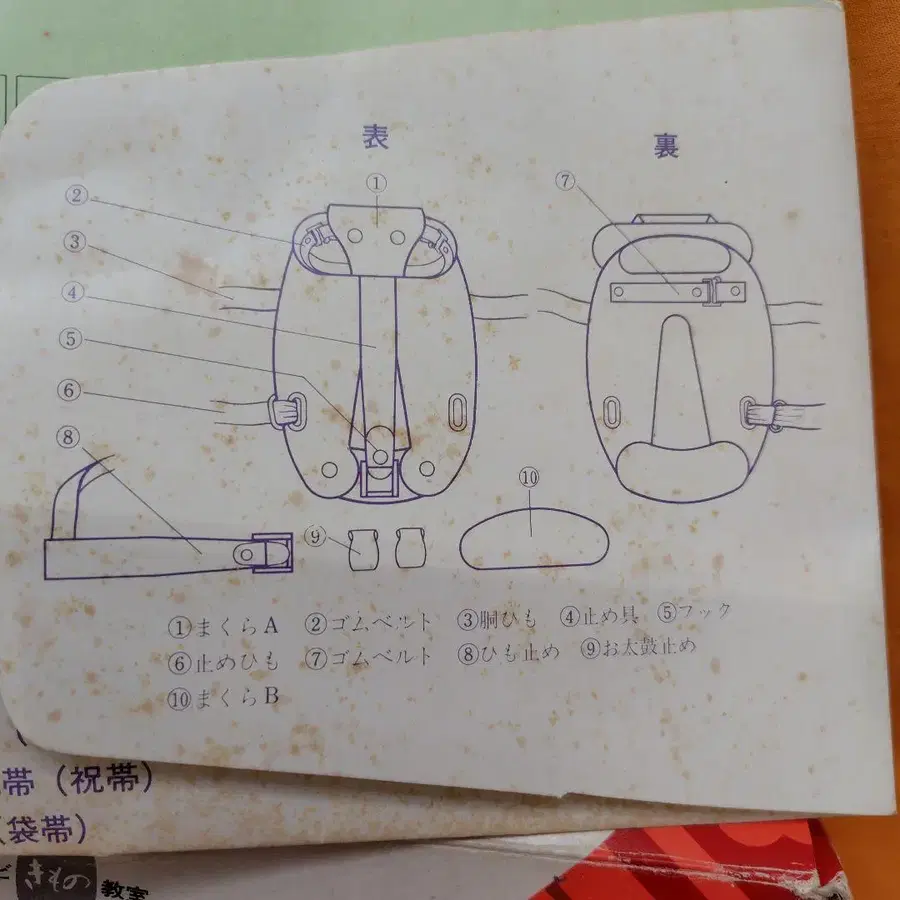 表
裏
①
⑦
②
③
④
⑤
⑥
⑧
⑨
⑩
①まくらA ②ゴムベルト ③胴ひも ④止め具 ⑤フック
⑥止めひも ⑦ゴムベルト ⑧ひも止め ⑨お太鼓止め
⑩まくらB
帯（祝帯）
（袋帯）
きもの 教室